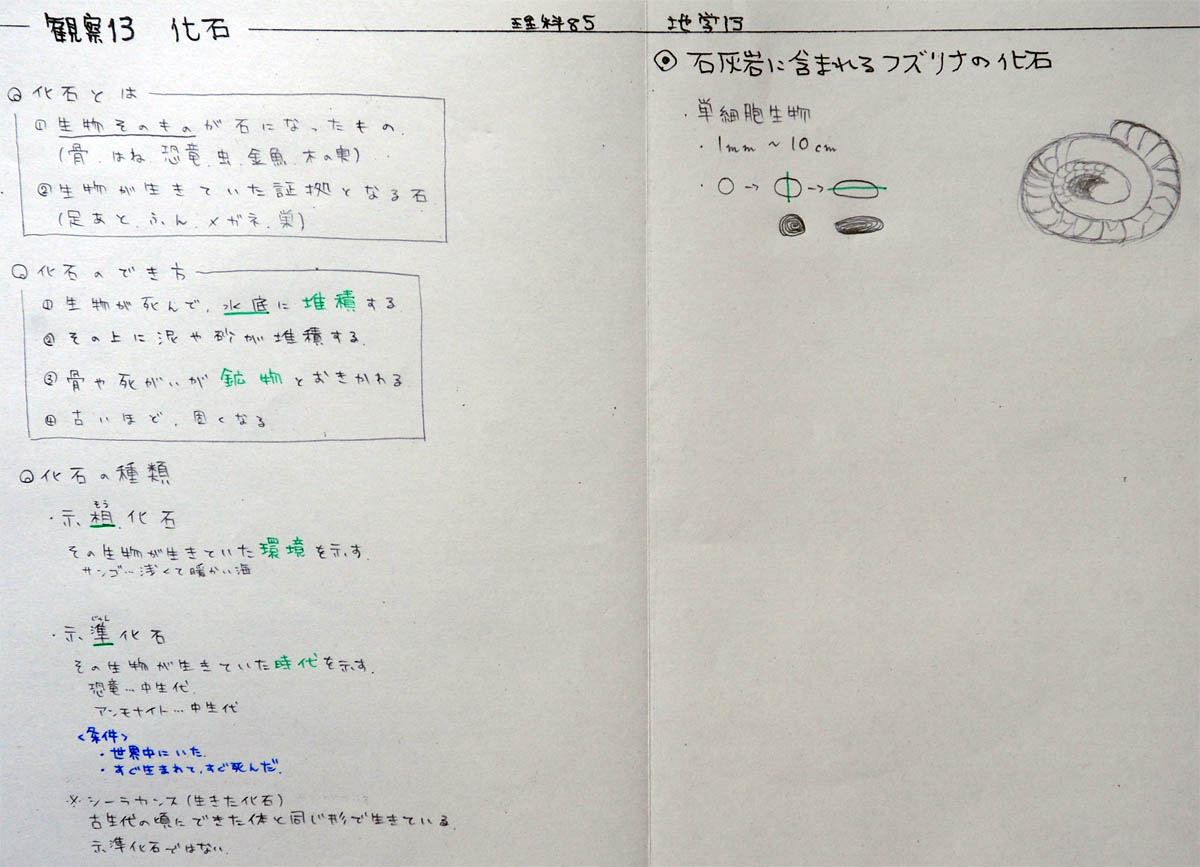 観察13 化石
理科85
地学13
化石とは
① 生物そのものが石になったもの.
(骨.はね.恐竜.虫.金魚.木の実)
②生物が生きていた証拠となる石
(足あと.ふん.メガネ.巣)
化石のでき方
① 生物が死んで,水底に堆積する
② その上に泥や砂が堆積する.
③ 骨や死がいが鉱物とおきかわる
④ 古いほど,固くなる
化石の種類
・示相化石
そう
その生物が生きていた環境を示す.
サンゴ…浅くて暖かい海
・示準化石
じゅん
その生物が生きていた時代を示す.
恐竜…中生代.
アンモナイト…中生代
<条件>
・世界中にいた.
・すぐ生まれて,すぐ死んだ.
※シーラカンス(生きた化石)
古生代の頃にできた体と同じ形で生きている.
示準化石ではない.
◎ 石灰岩に含まれるフズリナの化石
・単細胞生物
・1mm~10cm